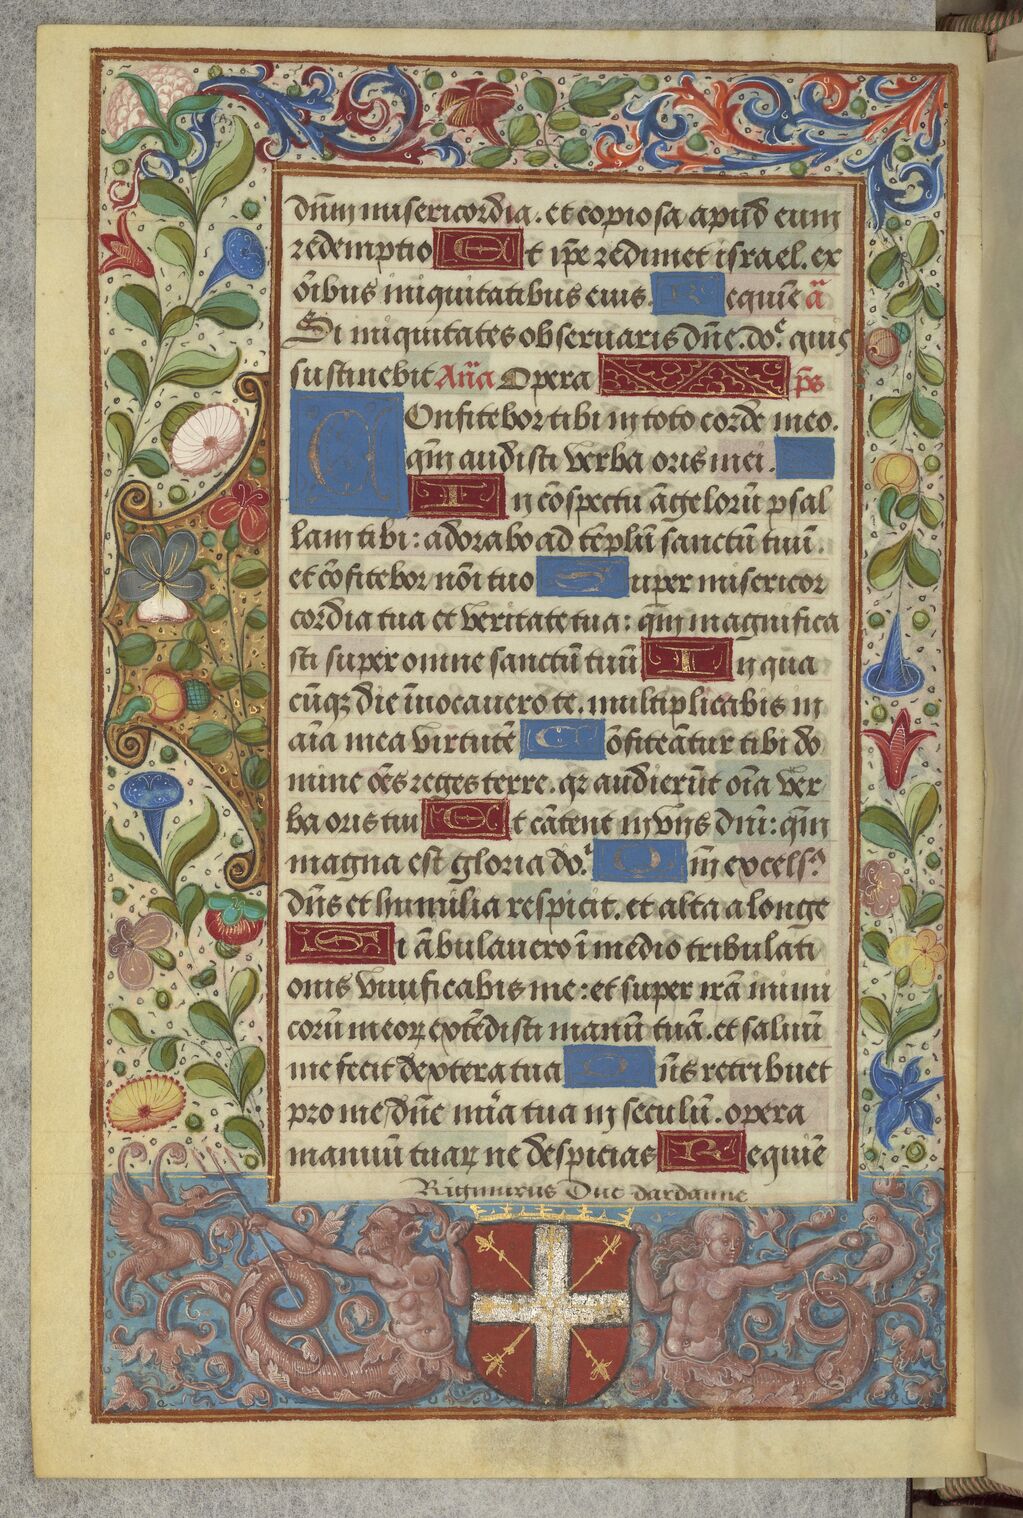 dūm misericordia. et copiosa apud eum
redemptio Et ip̄e redimet israel. ex
ōibus iniquitatibus eius. Requiē añ
Si iniquitates obseruaris dn̄e. do.ᵉ quis
sustinebit Añā Opera p̄s
COnfitebor tibi in toto corde meo.
qm̄ audisti verba oris mei.
In cōspectu āgelorū psal
lam tibi: adorabo ad tēplū sanctū tuū.
et cōfitebor nōi tuo Super misericor
cordia tua et veritate tua: qm̄ magnifica
sti super omne sanctū tuū In qua
cūqꝫ die īuocauero te. multiplicabis in
aīa mea virtutē Cōfiteātur tibi do
mine oēs reges terre. qꝛ audierūt oīa ver
ba oris tui Et cātent in vijs dn̄i: qm̄
magna est gloria do.ⁱ Qm̄ excels.⁹
dn̄s et humilia respicit. et alta a longe
Si ābulauero ī medio tribulati
onis viuificabis me: et super irā inimi
corū meoꝝ extēdisti manū tuā. et saluū
me fecit dextera tua Dn̄s retribuet
pro me dn̄e mīa tua in seculū. opera
manuū tuaꝝ ne despicias Requiē